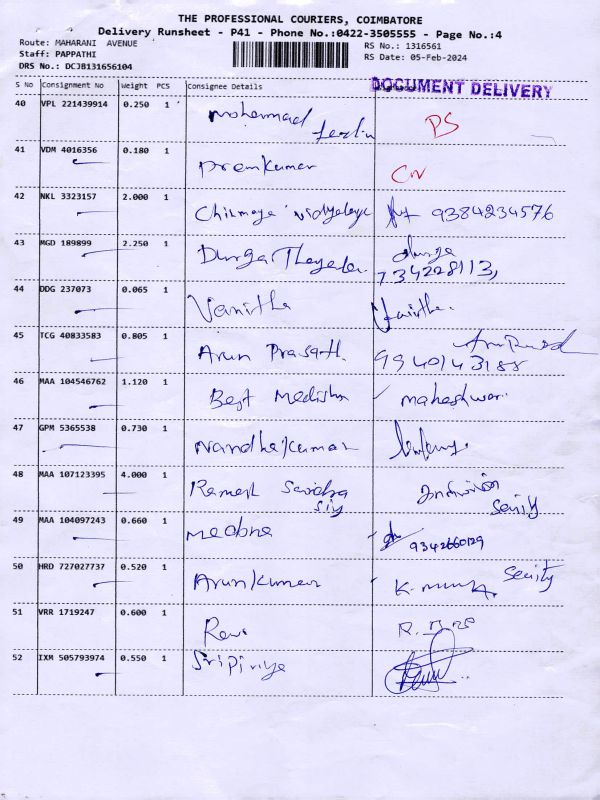 THE PROFESSIONAL COURIERS, COIMBATORE
Delivery Runsheet - P41 - Phone No.:0422-3505555 - Page No.:4
Route: MAHARANI AVENUE
RS No.: 1316561
Staff: PAPPATHI
RS Date: 05-Feb-2024
DRS No.: DCJB131656104
DOCUMENT DELIVERY
S No Consignment No Weight PCS Consignee Details
40 VPL 221439914 0.250 1 mohammad PS
41 VDM 4016356 0.180 1 Premkumar
42 NKL 3323157 2.000 1 Chinmaya Vidyalaya 9384234576
43 MGD 189899 2.250 1 Durga durga
44 DDG 237073 0.065 1 Vanitha Vanitha.
45 TCG 40833583 0.805 1 Arun Prasath. 9940143188
46 MAA 104546762 1.120 1 Best maheshwari
47 GPM 5365538 0.730 1 Nandhakumar
48 MAA 107123395 4.000 1 Ramesh
49 MAA 104097243 0.660 1 9342660129
50 HRD 727027737 0.520 1 Arunkumar
51 VRR 1719247 0.600 1 Ravi
52 IXM 505793974 0.550 1 Sripiriya